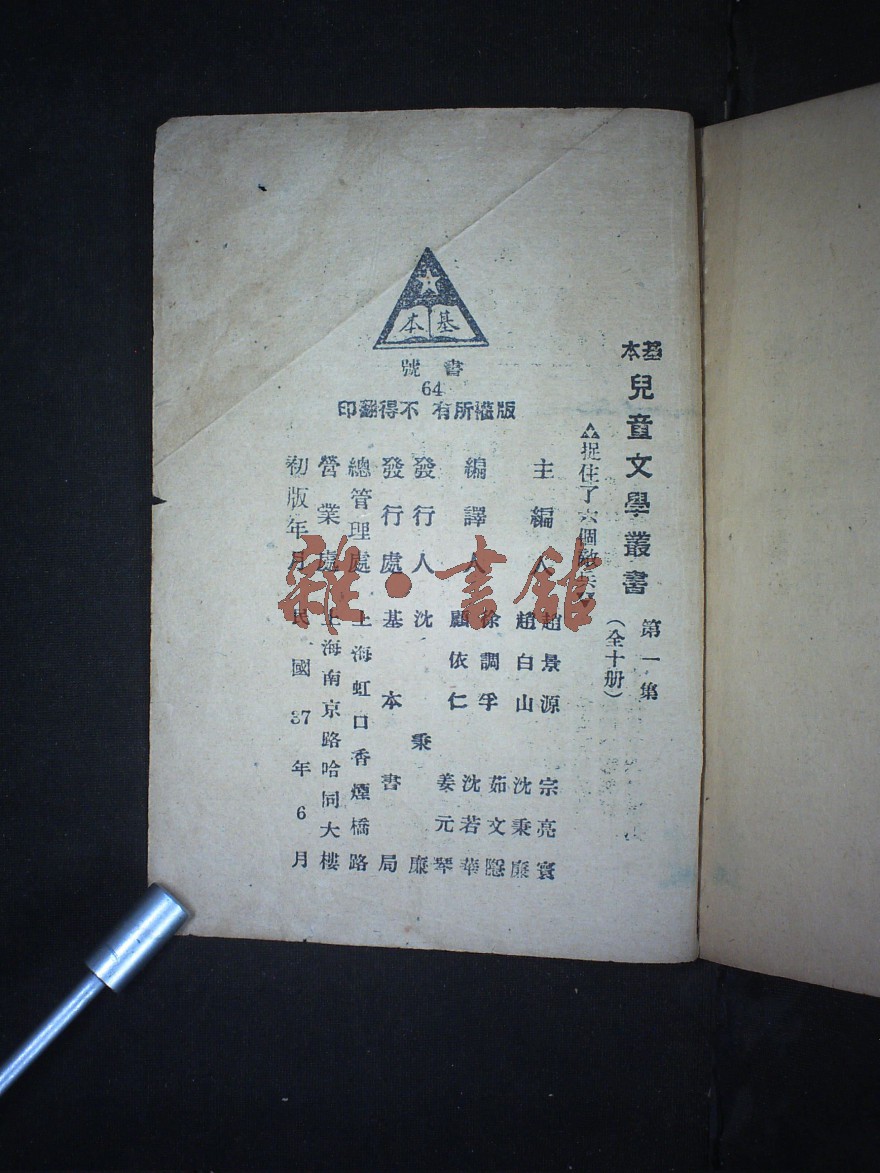 基本兒童文學叢書 第一集
捉住了六個敵兵 (全十册)
基本
書號
64
版權所有 不得翻印
主編人 趙景源 宗亮寰
趙白山 沈秉廉
編譯人 徐調孚 茹文
顧依仁 沈若華
姜元琴
發行人 沈秉廉
發行處 基本書局
總管理處 上海虹口香煙橋路
營業處 上海南京路哈同大樓
初版年月 民國37年6月
雜·書館